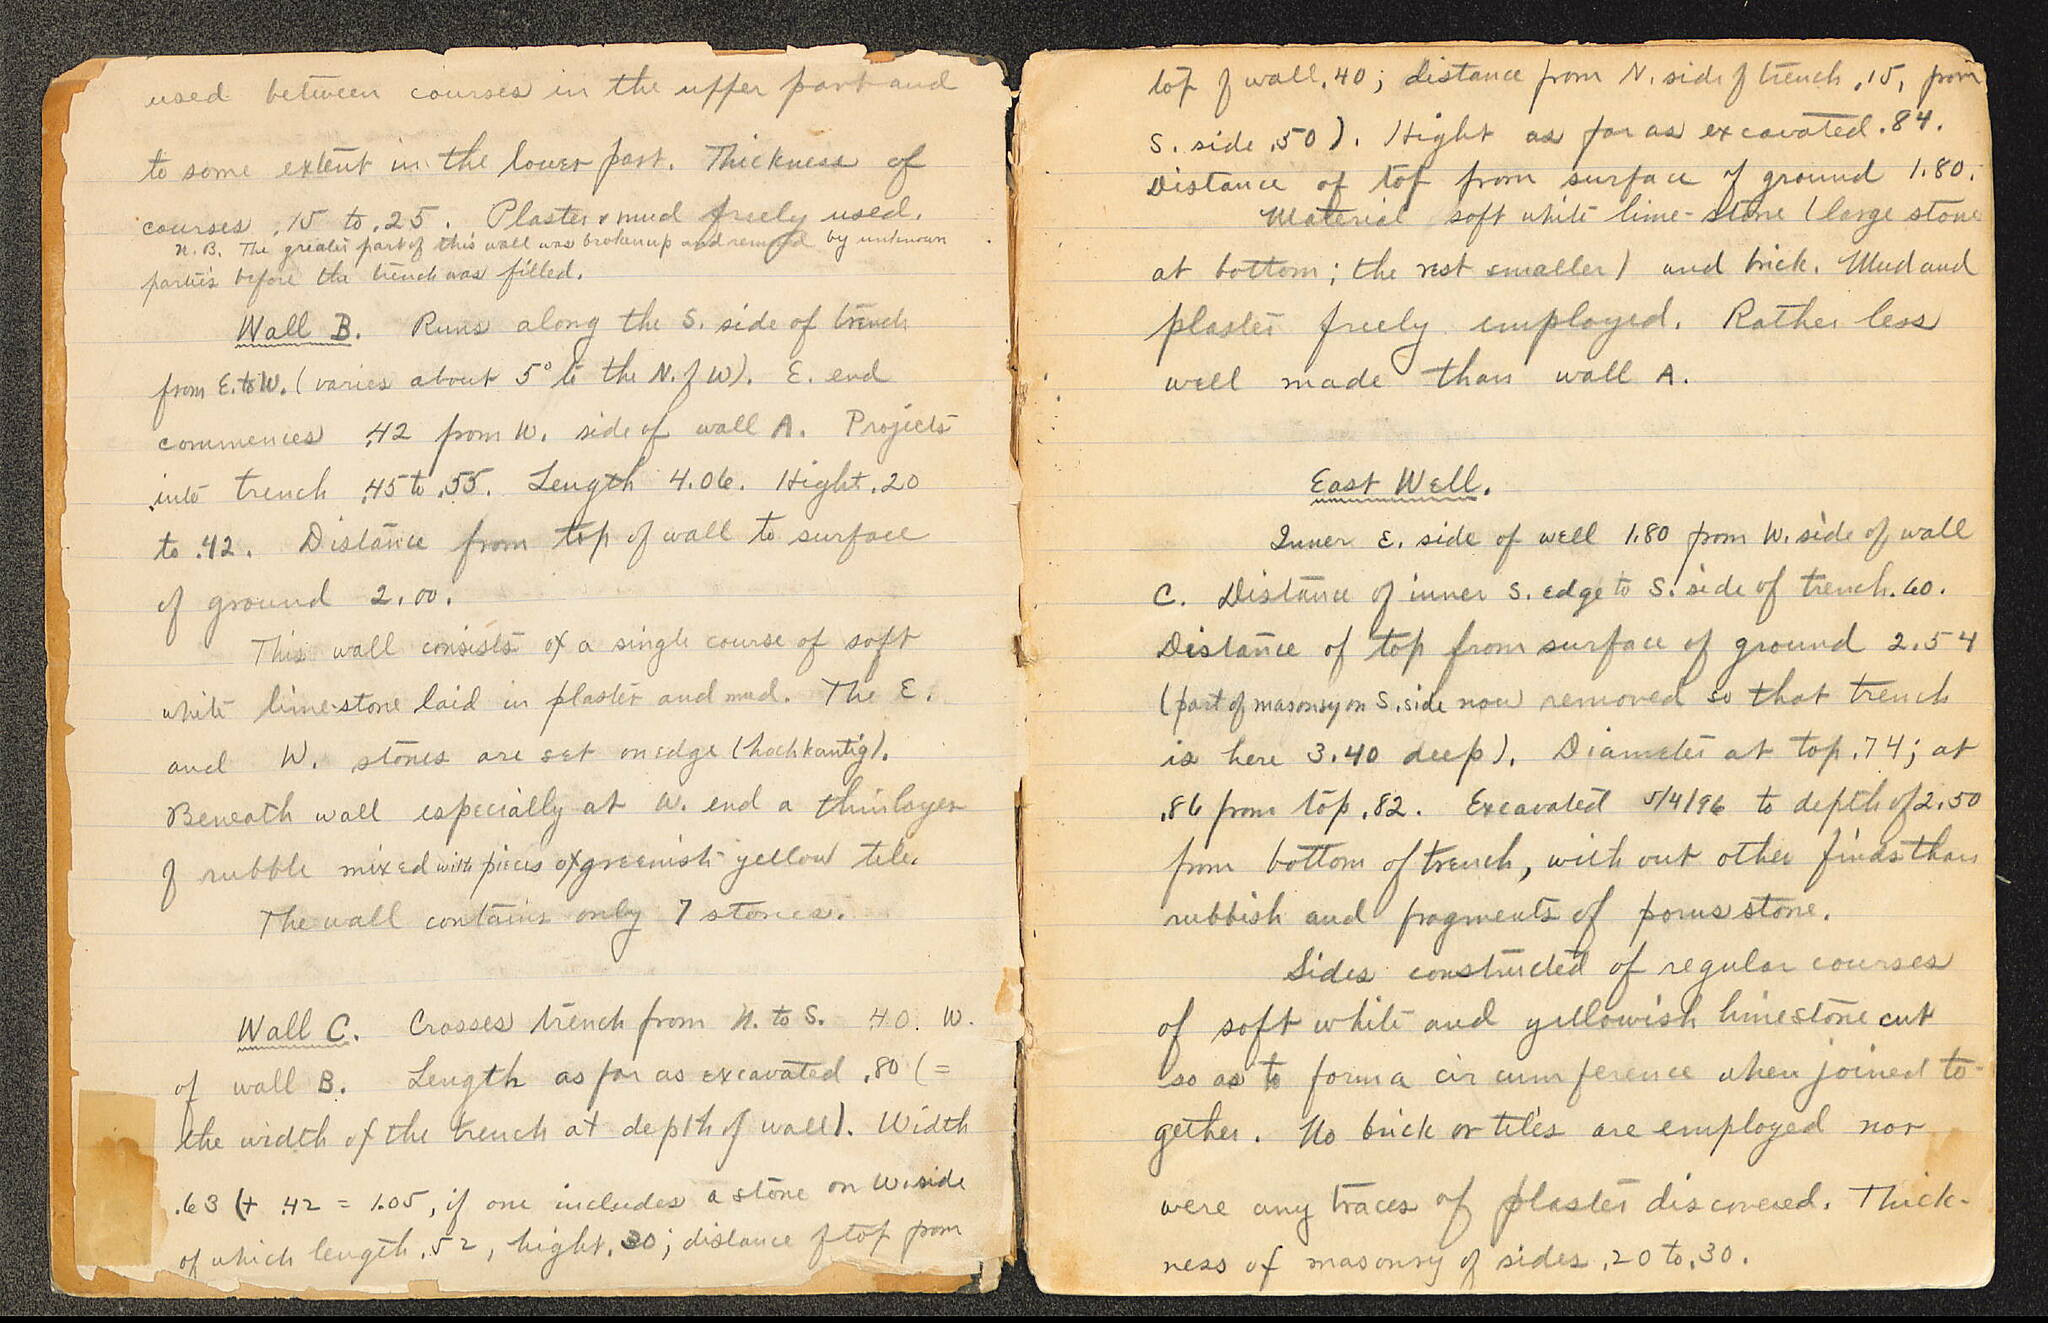 used between courses in the upper part and
to some extent in the lower part. Thickness of
courses .15 to .25. Plaster & mud freely used.
N.B. The greater part of this wall was broken up and removed by unknown
parties before the trench was filled.
Wall B. Runs along the S. side of trench
from E. to W. (varies about 5° to the N. of W). E. end
commences .42 from W. side of wall A. Projects
into trench .45 to .55. Length 4.06. Hight .20
to .42. Distance from top of wall to surface
of ground 2.00.
This wall consists of a single course of soft
white lime-stone laid in plaster and mud. The E.
and W. stones are set on edge (hochkantig).
Beneath wall especially at W. end a thin layer
of rubble mixed with pieces of greenish yellow tile.
The wall contains only 7 stones.
Wall C. Crosses trench from N. to S. .40 W.
of wall B. Length as far as excavated .80 (=
the width of the trench at depth of wall). Width
.63 (+ .42 = 1.05, if one includes a stone on W. side
of which length .52, hight .30; distance of top from
top of wall .40; distance from N. side of trench .15, from
S. side .50). Hight as far as excavated .84.
Distance of top from surface of ground 1.80.
Material soft white lime-stone (large stone
at bottom; the rest smaller) and brick. Mud and
plaster freely employed. Rather less
well made than wall A.
East Well.
Inner E. side of well 1.80 from W. side of wall
C. Distance of inner S. edge to S. side of trench .60.
Distance of top from surface of ground 2.54
(part of masonry on S. side now removed so that trench
is here 3.40 deep). Diameter at top .74; at
.86 from top .82. Excavated 5/4/96 to depth of 2.50
from bottom of trench, with out other finds than
rubbish and fragments of porus stone.
Sides constructed of regular courses
of soft white and yellowish limestone cut
so as to form a circumference when joined to-
gether. No brick or tiles are employed nor
were any traces of plaster discovered. Thick-
ness of masonry of sides .20 to .30.